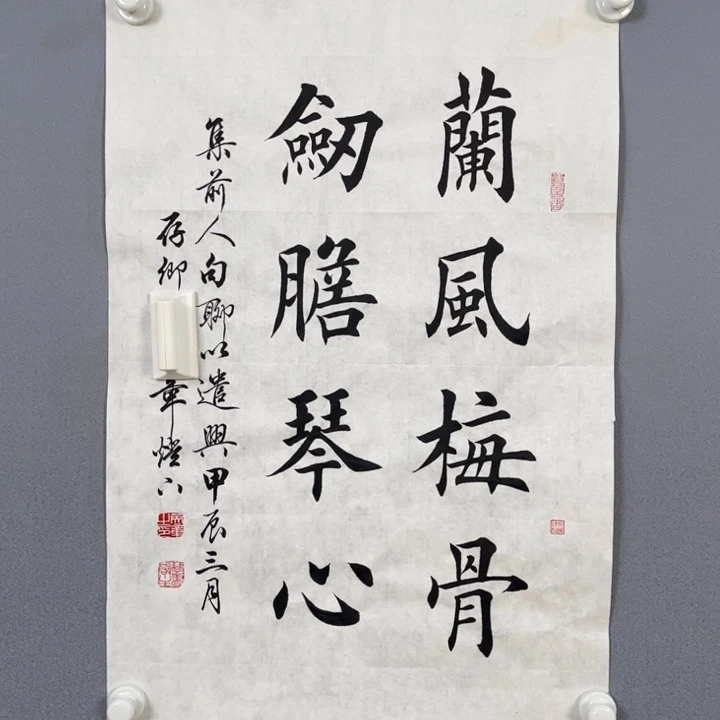 蘭風梅骨
劒膽琴心
集前人句聊以遣興甲辰三月
存卿 燈下